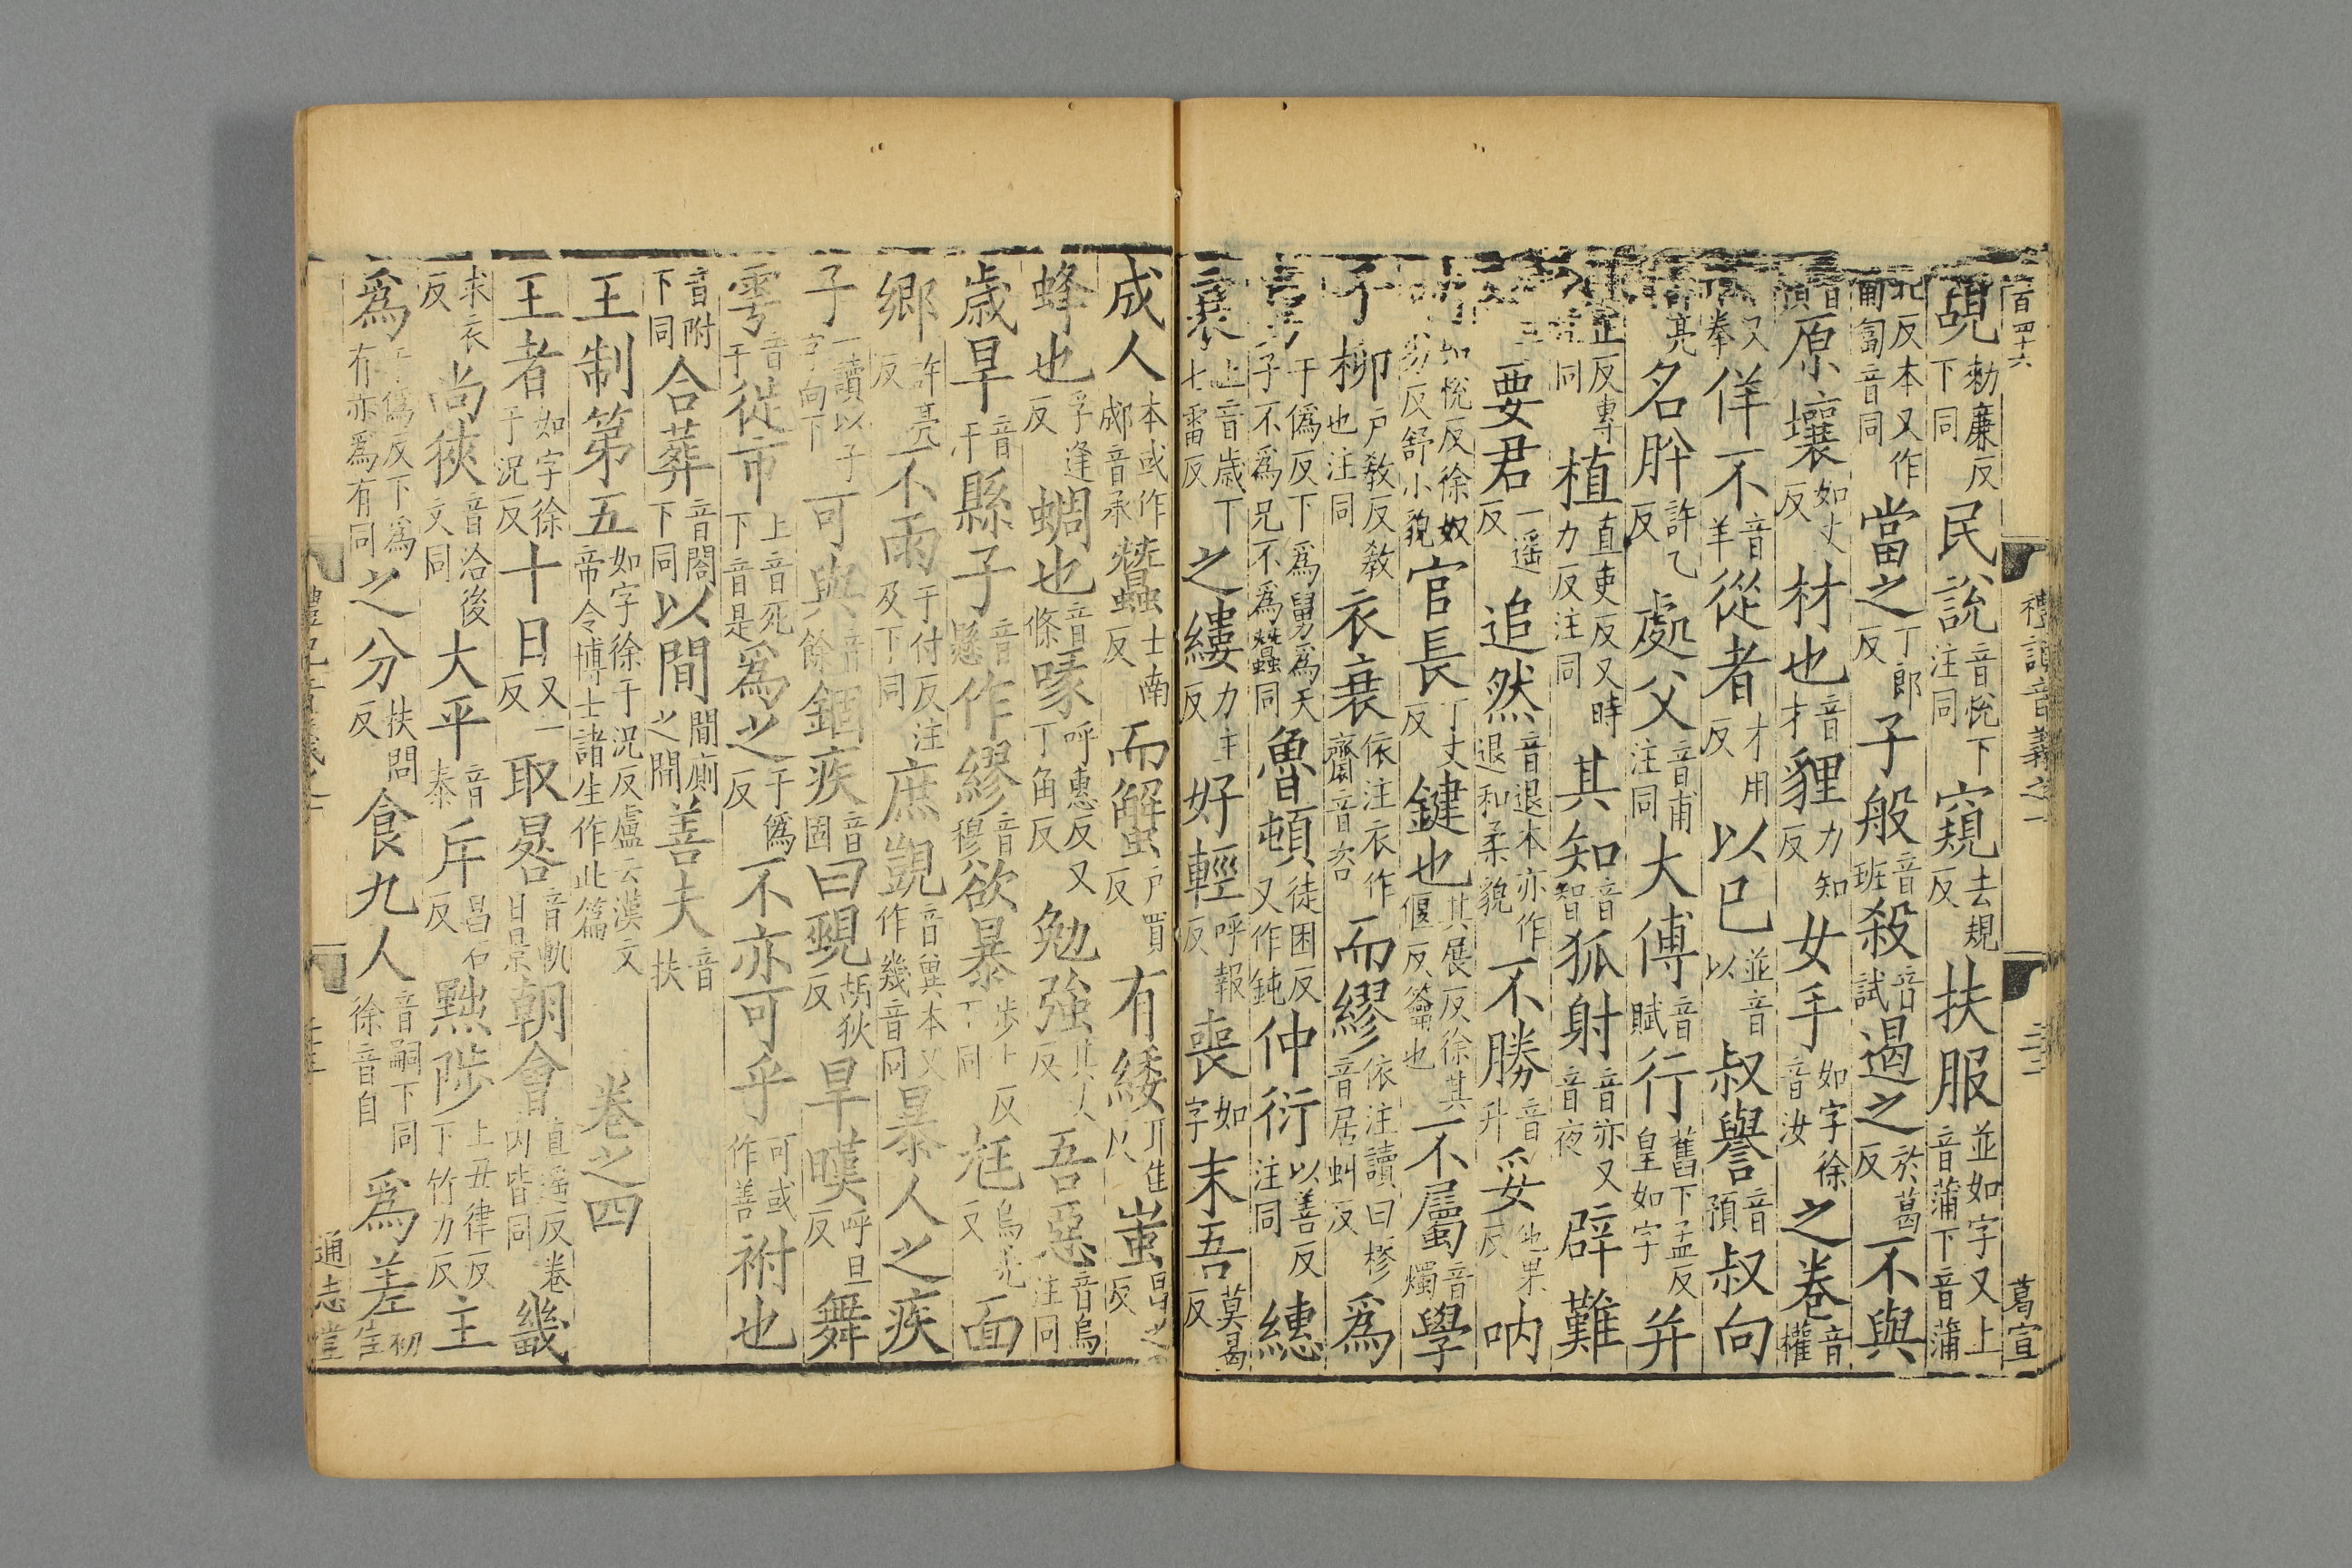 百四十六 禮記音義之一 三十二 葛宣
覘勑廉反下同 民說音悅下注同 窺去規反 扶服並如字又上音蒲下音蒲
北反本又作匍匐音同 當之丁郎反 子般音班 殺音試 遏之於葛反 不與
音預 原壤如丈反 材也音才 貍力知反 女手如字徐音汝 之卷音權
又 拳 佯不音羊 從者才用反 以已並音以 叔譽音預 叔向
亮 名肸許乙反 處父音甫注同 大傅音賦 行舊下孟反皇如字 并
正反專同 植直吏反又時力反注同 其知音智 狐射音亦又音夜 辟難
要君一遥反 追然音退本亦作退和柔貌 不勝音升 妥他果反 吶
如悅反徐奴劣反舒小貌 官長丁丈反 鍵也其展反徐其偃反籥也 不屬音燭 學
子柳戶敎反敎也注同 衣衰依注衣作齌音咨 而繆依注讀曰樛音居虯反 爲
于僞反下爲舅爲天子不爲兄不爲蠶同 魯頓徒困反又作鈍 仲衍以善反注同 繐
衰上音歲下七雷反 之縷力主反 好輕呼報反 喪如字 末吾莫曷反
成人本或作郕音承 蠶士南反 而蟹戶買反 有緌 蚩昌之反
蜂也孚逢反 蜩也音條 喙呼惠反又丁角反 勉強其丈反 吾惡音烏注同
歲旱音干 縣子音懸 作繆音穆 欲暴步卜反下同 尪烏光反 面
鄉許亮反 不雨于付反注及下同 庶覬音兾本又作幾音同 暴人之疾
子一讀以子字向下 可與音餘 錮疾音固 曰覡胡狄反 旱暵呼旦反 舞
雩音于 徙市上音死下音是 爲之于僞反 不亦可乎可或作善 祔也
音附下同 合葬音閤下同 以間間厠之間 善夫音扶
王制第五如字徐于況反盧云漢文帝令博士諸生作此篇 卷之四
王者如字徐于況反 十日又一反 取晷音軌日景 朝會直遥反卷内皆同 畿
求衣反 尚狹音洽後文同 大平音泰 斥昌石反 黜陟上丑律反下竹力反 主
爲于僞反下爲有亦爲有同 之分扶問反 食九人音嗣下同徐音自 爲差初 
通志堂